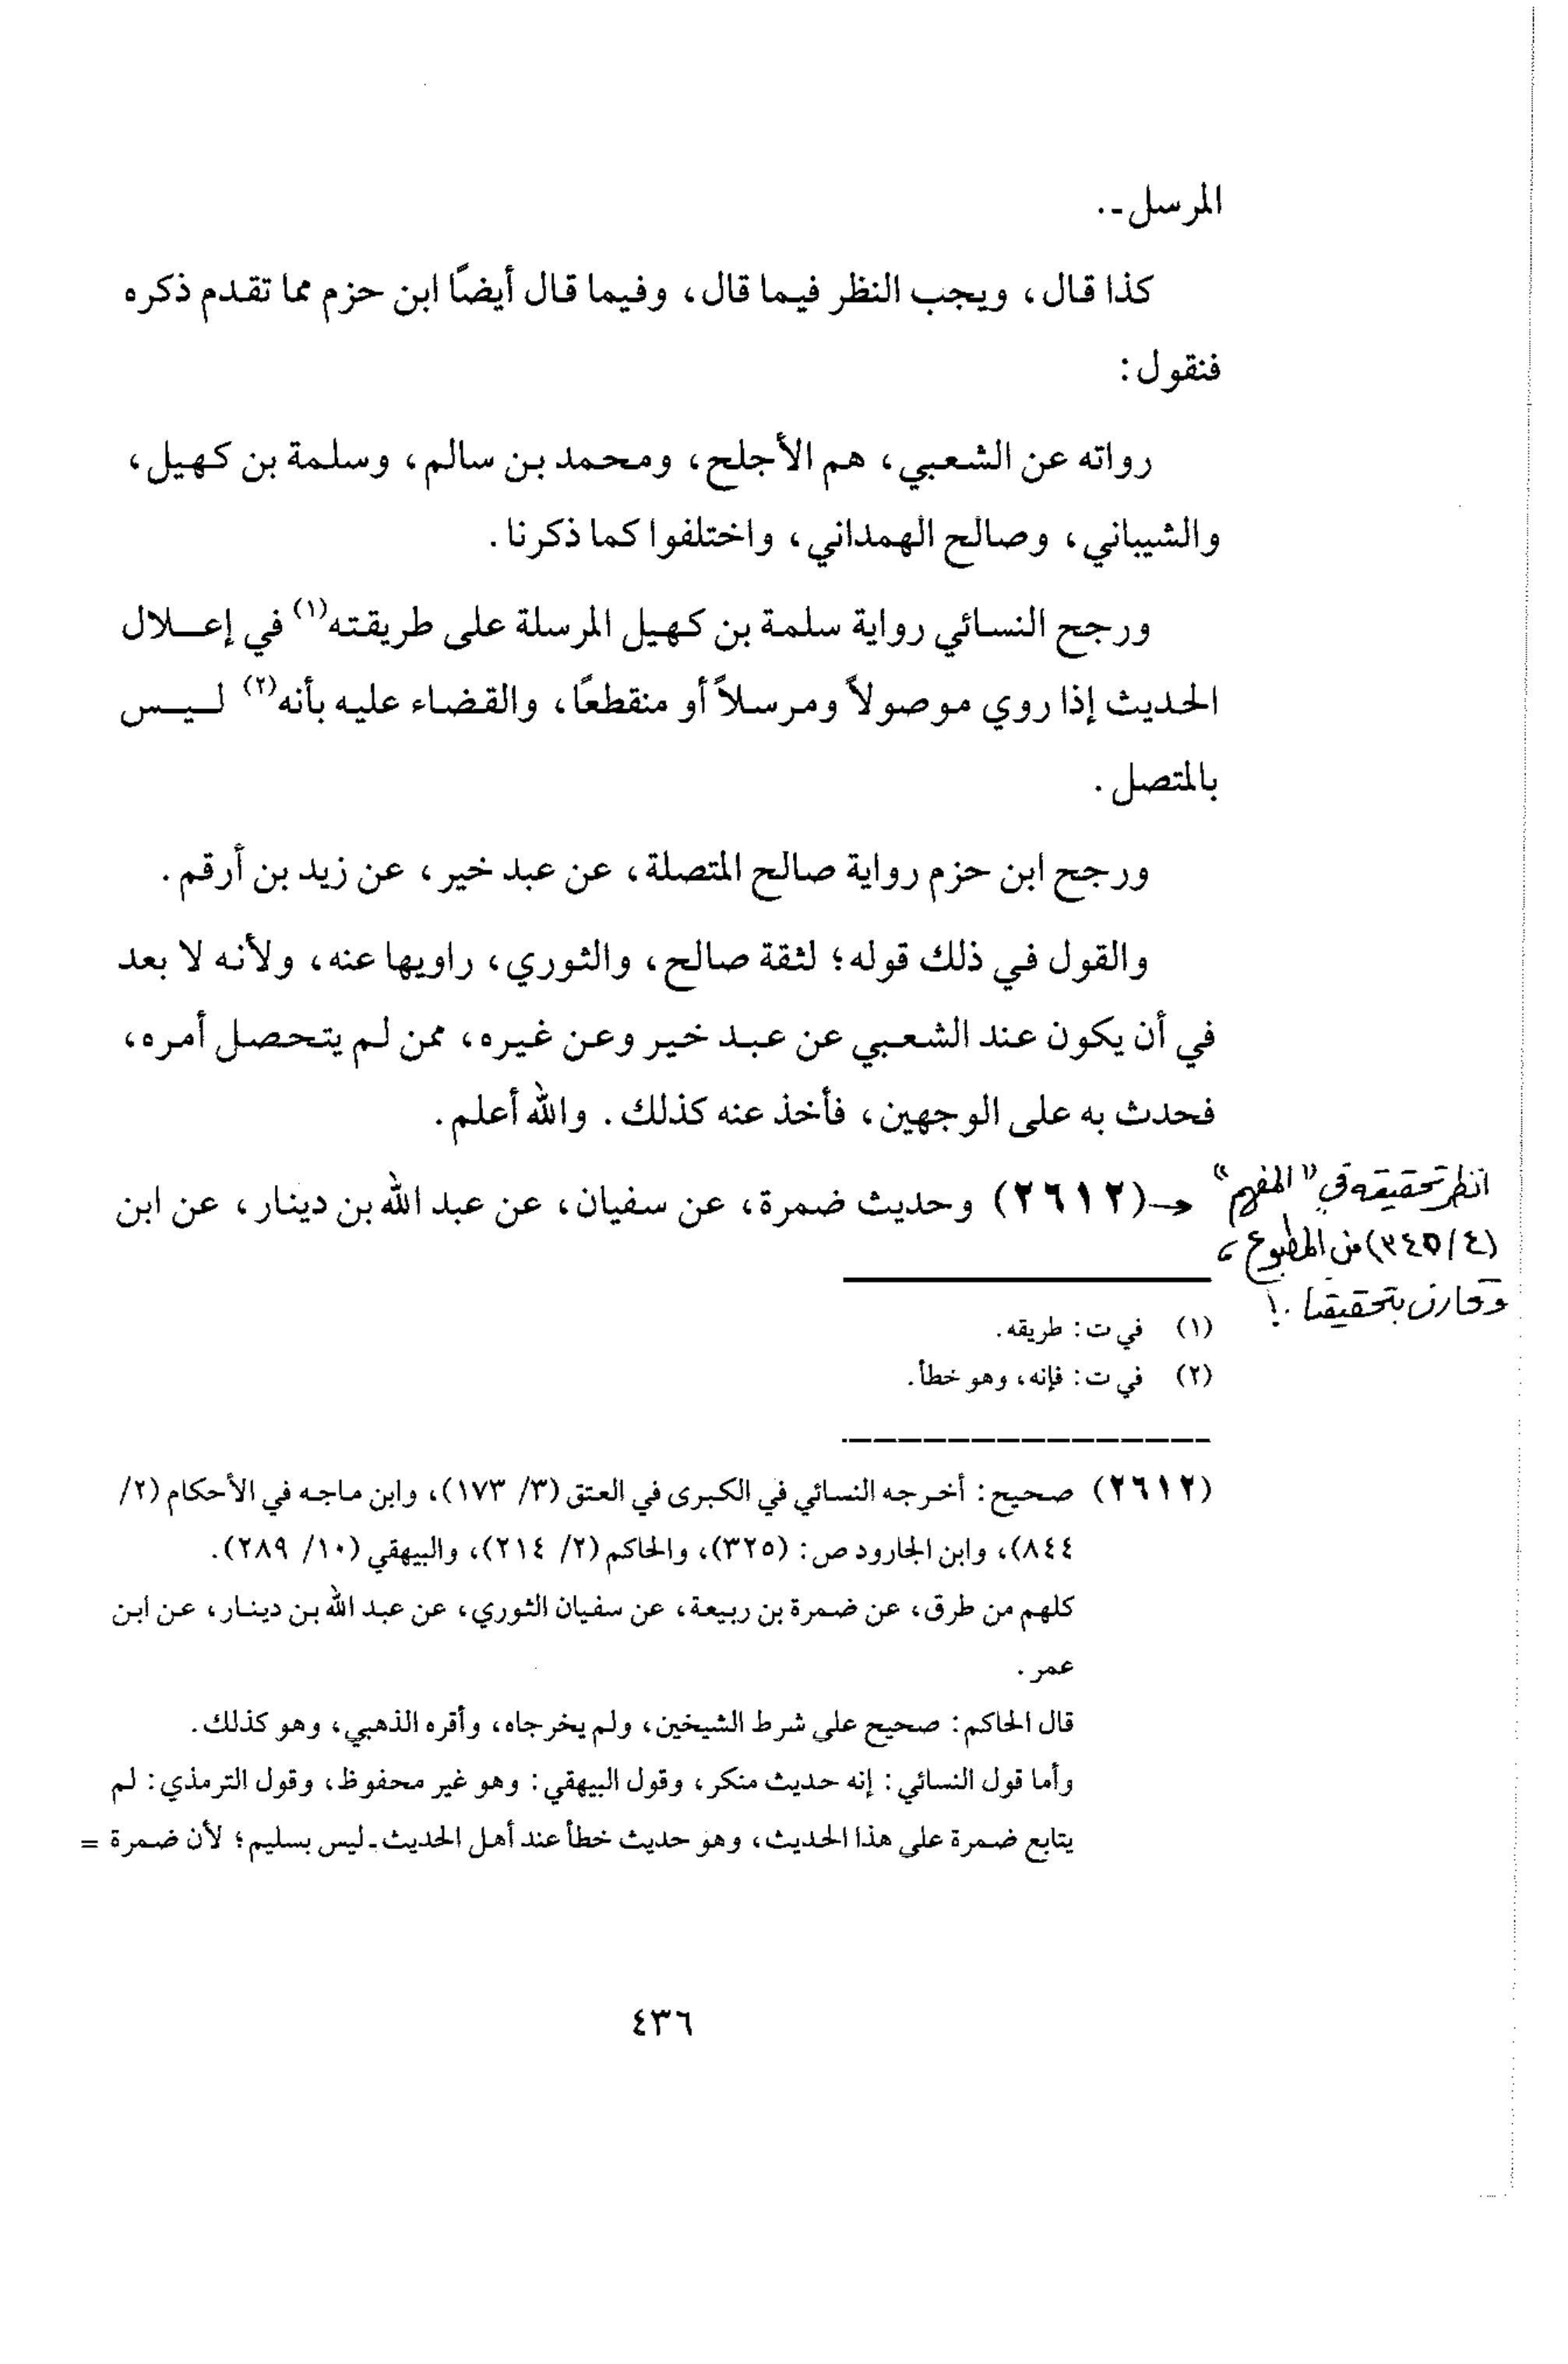 المرسل ـ.
كذا قال، ويجب النظر فيما قال، وفيما قال أيضًا ابن حزم مما تقدم ذكره
فنقول:
رواته عن الشعبي، هم الأجلح، ومحمد بن سالم، وسلمة بن كهيل،
والشيباني، وصالح الهمداني، واختلفوا كما ذكرنا.
ورجح النسائي رواية سلمة بن كهيل المرسلة على طريقته(١) في إعلال
الحديث إذا روي موصولاً ومرسلاً أو منقطعًا، والقضاء عليه بأنه(٢) ليس
بالمتصل.
ورجح ابن حزم رواية صالح المتصلة، عن عبد خير، عن زيد بن أرقم.
والقول في ذلك قوله؛ لثقة صالح، والثوري، راويها عنه، ولأنه لا بعد
في أن يكون عند الشعبي عن عبد خير وعن غيره، ممن لم يتحصل أمره،
فحدث به على الوجهين، فأخذ عنه كذلك. والله أعلم.
(٢٦١٢) وحديث ضمرة، عن سفيان، عن عبد الله بن دينار، عن ابن
انظر تحقيقه في "المفهم"
(٤/٣٤٥) من المطبوع،
وقارن بتحقيقنا.!
(١) في ت: طريقه.
(٢) في ت: فإنه، وهو خطأ.
(٢٦١٢) صحيح: أخرجه النسائي في الكبرى في العتق (٣/ ١٧٣)، وابن ماجه في الأحكام (٢/
٨٤٤)، وابن الجارود ص: (٣٢٥)، والحاكم (٢/ ٢١٤)، والبيهقي (١٠/ ٢٨٩).
كلهم من طرق، عن ضمرة بن ربيعة، عن سفيان الثوري، عن عبد الله بن دينار، عن ابن
عمر.
قال الحاكم: صحيح على شرط الشيخين، ولم يخرجاه، وأقره الذهبي، وهو كذلك.
وأما قول النسائي: إنه حديث منكر، وقول البيهقي: وهو غير محفوظ، وقول الترمذي: لم
يتابع ضمرة على هذا الحديث، وهو حديث خطأ عند أهل الحديث ـ ليس بسليم؛ لأن ضمرة =
٤٣٦